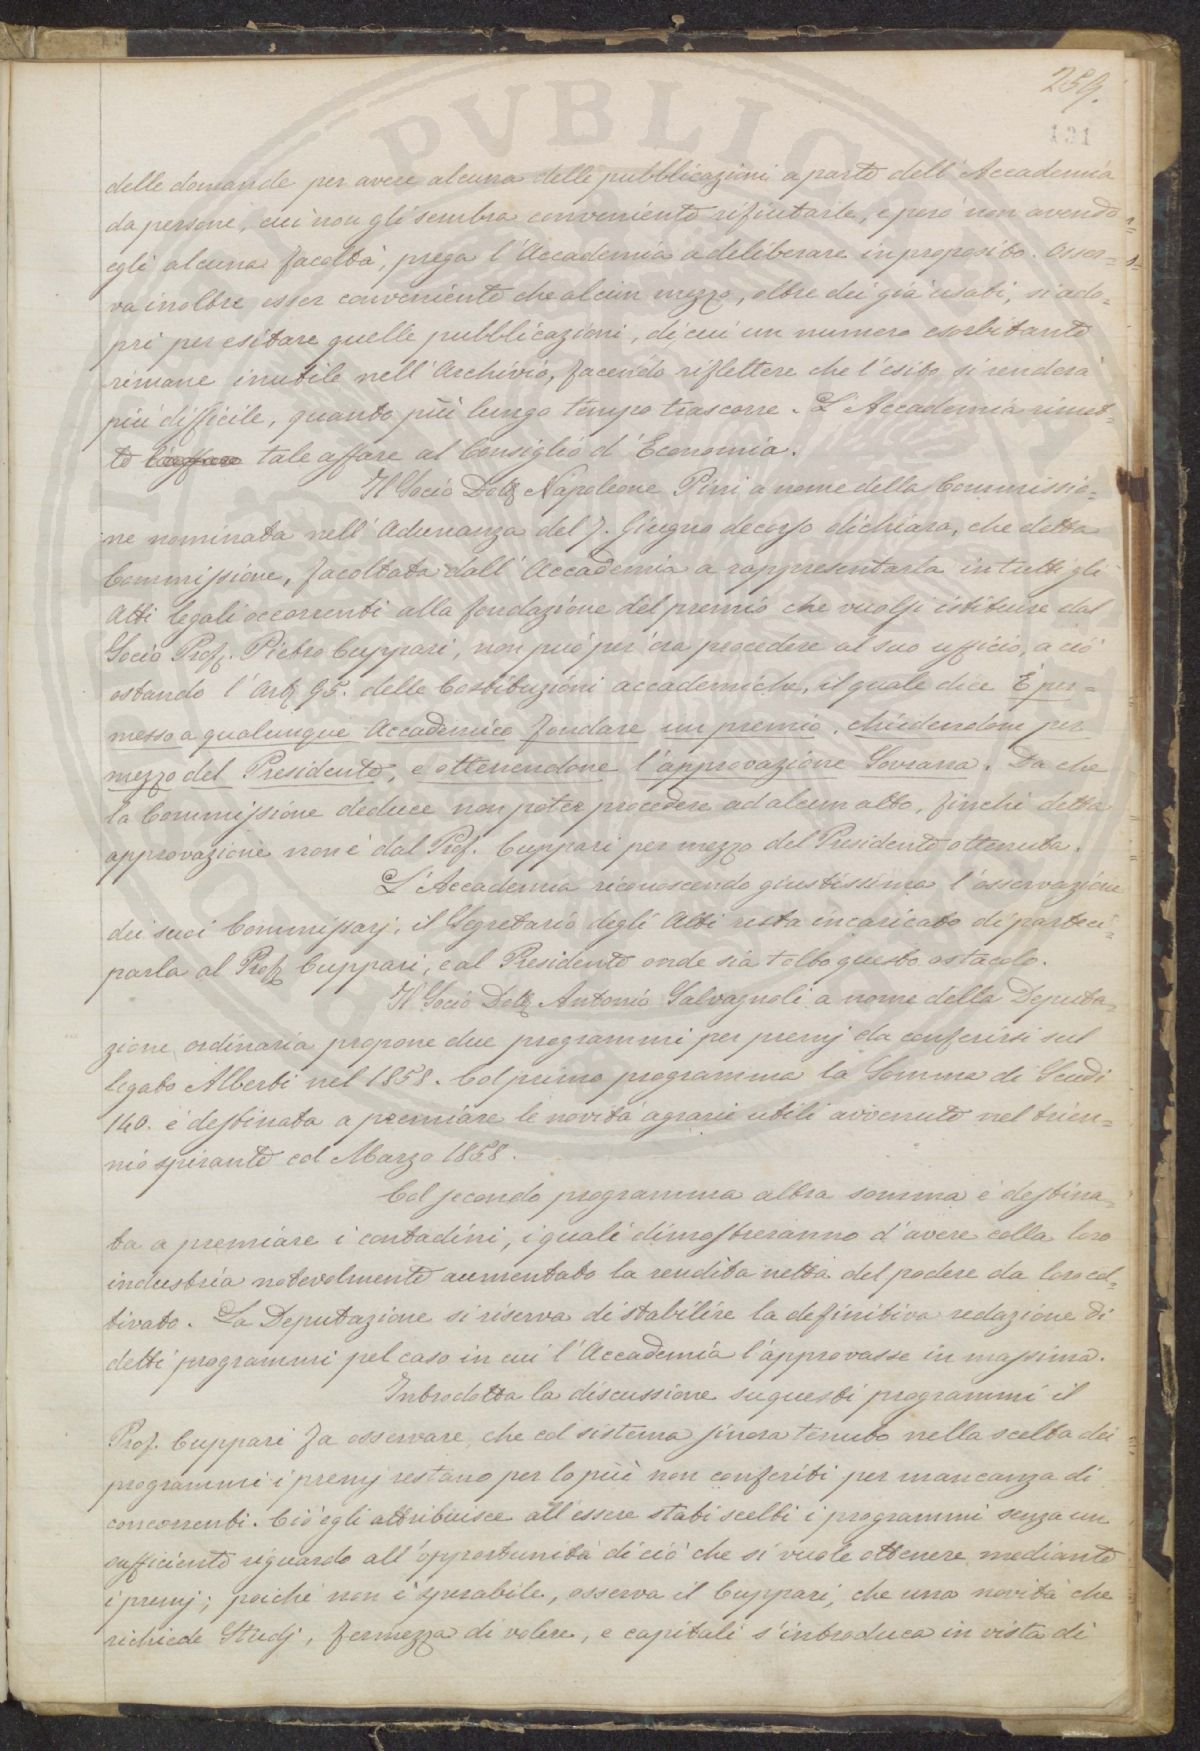 259.
131
delle domande per avere alcuna delle pubblicazioni a parte dell'Accademia
da persone, cui non gli sembra conveniente rifiutarle, e però non avendo
egli alcuna facoltà, prega l'Accademia a deliberare in proposito. Osser=
va inoltre esser conveniente che alcun mezzo, oltre dei già usati, si ado=
pri per esitare quelle pubblicazioni, di cui un numero esorbitante
rimane inutile nell'Archivio, facendo riflettere che l'esito si renderà
più difficile, quanto più lungo tempo trascorre. L'Accademia rimet=
te l'affare tale affare al Consiglio d'Economia.
Il Socio Dott Napoleone Pini a nome della Commissio=
ne nominata nell'Adunanza del 7. Giugno decorso dichiara, che detta
Commissione, facoltata dall'Accademia a rappresentarla in tutti gli
Atti legali occorrenti alla fondazione del premio che vuolsi istituire dal
Socio Prof. Pietro Cuppari, non può per ora procedere al suo ufficio, a ciò
ostando l'Art 95. delle Costituzioni accademiche, il quale dice È per=
messo a qualunque Accademico fondare un premio, chiedendone per
mezzo del Presidente, e ottenendone l'approvazione Sovrana. Da che
la Commissione deduce non poter procedere ad alcun atto, finchè detta
approvazione non è dal Prof. Cuppari per mezzo del Presidente ottenuta.
L'Accademia riconoscendo giustissima l'osservazione
dei suoi Commissarj, il Segretario degli Atti resta incaricato di parteci=
parla al Prof Cuppari, e al Presidente onde sia tolto questo ostacolo.
Il Socio Dott Antonio Salvagnoli a nome della Deputa=
zione ordinaria propone due programmi per premj da conferirsi sul
legato Alberti nel 1858. Col primo programma la Somma di Scudi
140. è destinata a premiare le novità agrarie utili avvenute nel trien=
nio spirante col Marzo 1858.
Col secondo programma altra somma è destina=
ta a premiare i contadini, i quali dimostreranno d'avere colla loro
industria notevolmente aumentato la rendita netta del podere da loro col=
tivato. La Deputazione si riserva di stabilire la definitiva redazione di
detti programmi pel caso in cui l'Accademia l'approvasse in massima.
Introdotta la discussione su questi programmi il
Prof. Cuppari fa osservare, che col sistema finora tenuto nella scelta dei
programmi i premj restano per lo più non conferiti per mancanza di
concorrenti. Ciò egli attribuisce all'essere stati scelti i programmi senza un
sufficiente riguardo all'opportunità di ciò che si vuole ottenere mediante
i premj; poichè non è sperabile, osserva il Cuppari, che una novità che
richiede Studj, fermezza di volere, e capitali s'introduca in vista di